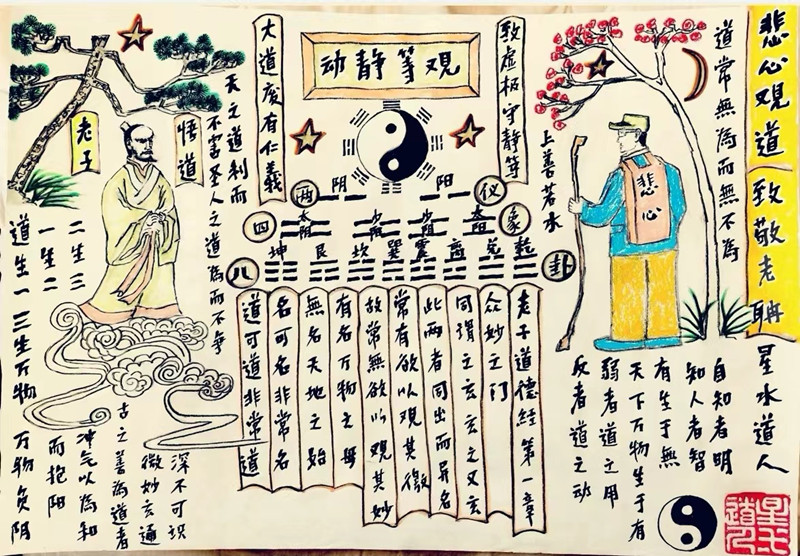 动静等观
大道废有仁義
致虚极守静等
上善若水
道常無為而無不為
悲心观道 致敬老聃
星水道人
悲心
老子
悟道
天之道利而
不害圣人之道為而不争
两 阴 阳 仪
四 太阴 少阳 少阴 太阳 象
坤 艮 坎 巽 震 离 兑 乾
八 卦
道可道非常道
名可名非常名
無名天地之始
有名万物之母
故常無欲以观其妙
常有欲以观其徼
此两者同出而异名
同谓之玄玄之又玄
众妙之门
老子道德经第一章
道生一
一生二
二生三
三生万物
万物负阴
而抱阳
冲气以為和
古之善為道者
微妙玄通
深不可识
反者道之动
弱者道之用
天下万物生于有
有生于無
知人者智
自知者明